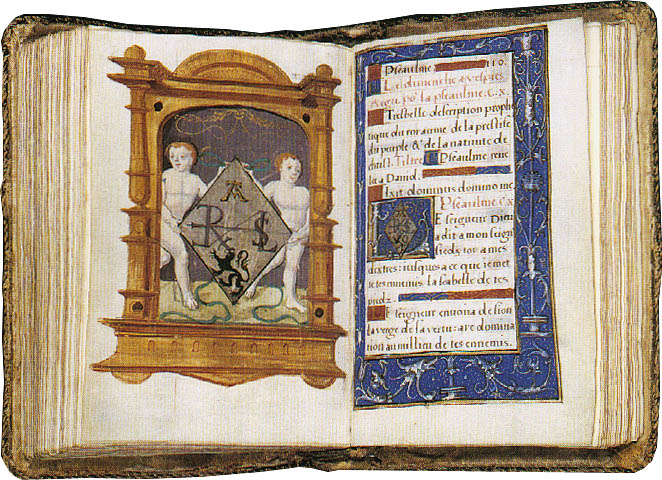 A
R
Pseaulme 110.
Le dimenche a vespres
Argu. po la pseaulme. C.x.
Tresbelle description prophe
tique du royaume de la prestise
du peuple & de la natiuite de
christ. Tiltre Pseaulme reue
a Dauid.
ixit dominus domino me
Pseaulme C.x
E seigneur Dieu
a dit a mon seign
toy a mes
dextres: iusques a ce que ie met
te tes ennemis. la scabelle de tes
piedz.
seigneur enuoira de sion
la verge de sa vertu: aye domina
tion au millieu de tes ennemis.